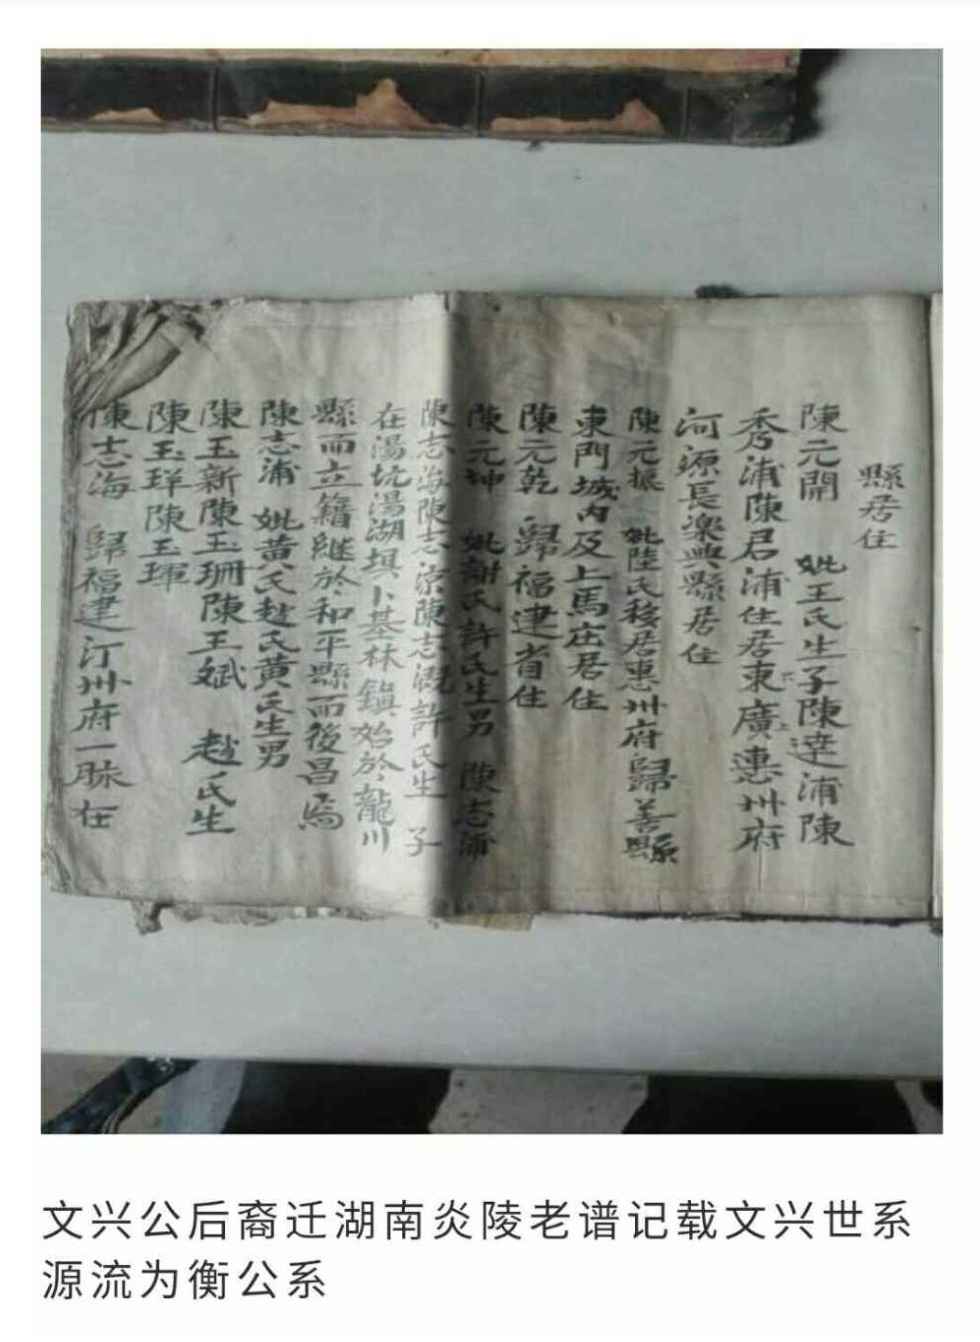 縣居住
陳元開 妣王氏生子陳達浦陳
秀浦陳君浦住居東廣惠州府
河源長樂興縣居住
陳元振 妣陸氏移居惠州府歸善縣
東門城內及上馬庄居住
陳元乾 歸福建省住
陳元坤 妣謝氏許氏生男 陳志浦
陳志海陳志 陳志 許氏生 子
在湯坑湯湖 卜基林鎮始於龍川
縣而立籍継於和平縣而後昌焉
陳志浦 妣黃氏赵氏黃氏生男
陳玉新陳玉珊陳玉斌 赵氏生
陳玉 陳玉琿
陳志海 歸福建汀州府一脉在
文兴公后裔迁湖南炎陵老谱记载文兴世系
源流为衡公系